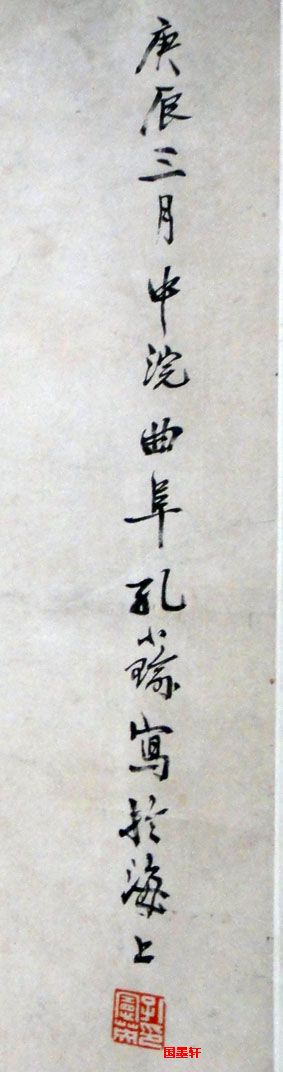 庚辰三月中浣曲阜孔小瑜寫於海上
国墨轩